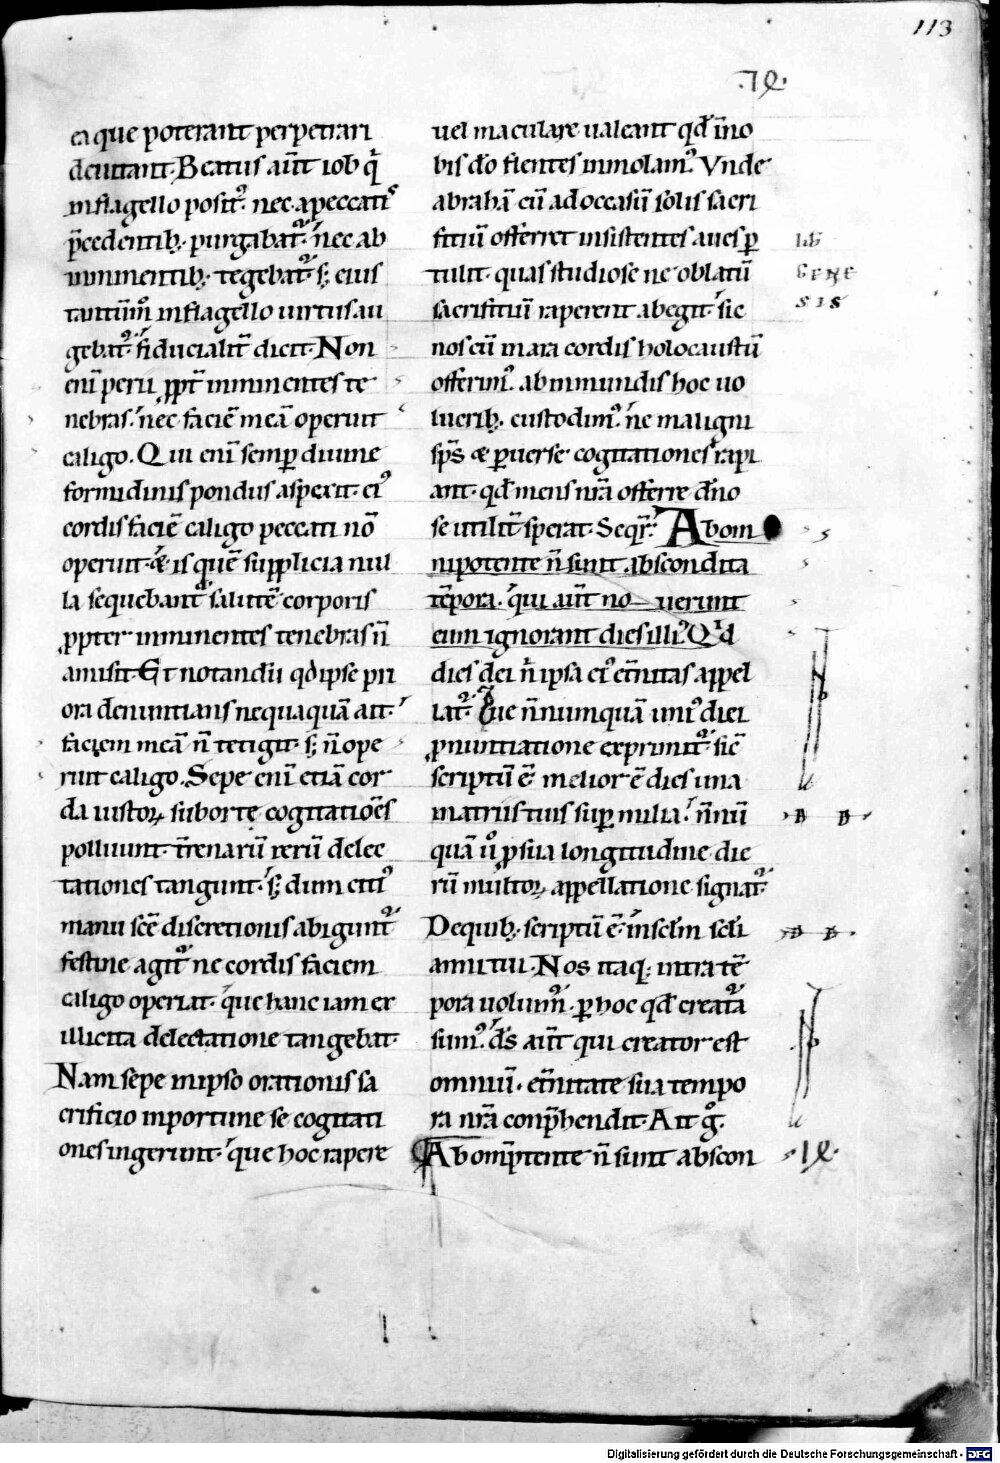 113
ea que poterant perpetrari
deuitant. Beatus aūt iob q̄
in flagello posit᷒. nec a peccatis
p̄cedentib; purgabat᷑. nec ab
inminentib; tegebat᷑ s; eius
tantūm᷒ in flagello uirtus au
gebat᷑. fiducialit̄ dicit. Non
eni᷒ perii ꝓpt̄ inminentes te
nebras. nec faciē meā operuit
caligo. Qui enī semꝑ diuine
formidinis pondus aspexit. ei᷒
cordis faciē caligo peccati nō
operuit. & is quē supplicia nul
la sequebant᷑ salutē corporis
ꝓpter inminentes tenebras n̄
amisit. Et notandū qđ ipse pri
ora denuntians nequaquā ait.
faciem meā n̄ tetigit. s; n̄ ope
ruit caligo. Sepe enī etiā cor
da iustoꝝ suborte cogitatiōes
polluunt. t̄renarū rerū delec
tationes tangunt. s; dum citi᷒
manu scē discretionis abigunt᷑
festine agit᷑ ne cordis faciem
caligo operiat. que hanc iam ex
illicita delectatione tangebat.
Nam sepe in ipso orationis sa
crificio inportune se cogitati
ones ingerunt. que hoc rapere
uel maculare ualeant qđ in no
bis dō flentes inmolam᷒. Vnde
abrahā cū ad occasū solis sacri
fitiū offerret insistentes aues ꝑ
tulit. quas studiose ne oblatū
sacrifitiū raperent abegit. sic
nos cū in ara cordis holocaustū
offerim᷒. ab inmundis hoc uo
lucrib; custodim᷒. ne maligni
sp̄s & ꝑuerse cogitationes rapi
ant. qđ mens nr̄a offerre dn̄o
se utilit̄ sperat. Seqr̄. Ab om
nipotente n̄ sunt abscondita
tēpora. qui aūt no uerunt
eum ignorant dies illi᷒. Qid
dies dei n̄ ipsa ei᷒ et̄nitas appel
lat᷑. Que n̄numquā uni᷒ diei
ꝓnuntiatione exprimit᷑ sic̄
scriptū ē. melior ē dies una
in atriis tuis suꝑ milia. n̄nū
quā u̇̄ ꝓ sua longitudine die
rū multoꝝ appellatione signat᷑
De quib; scriptū ē. in sclm̄ scli
anni tui. Nos itaq; intra tē
pora uoluim᷑. ꝑ hoc qđ creata᷑
sum᷒. ds̄ aūt qui creator est
omniū. et̄nitate sua tempo
ra nr̄a conp̄hendit. Ait g̊.
Ab omīptente n̄ sunt abscon
LIB
GENE
SIS
Digitalisierung gefördert durch die Deutsche Forschungsgemeinschaft - DFG